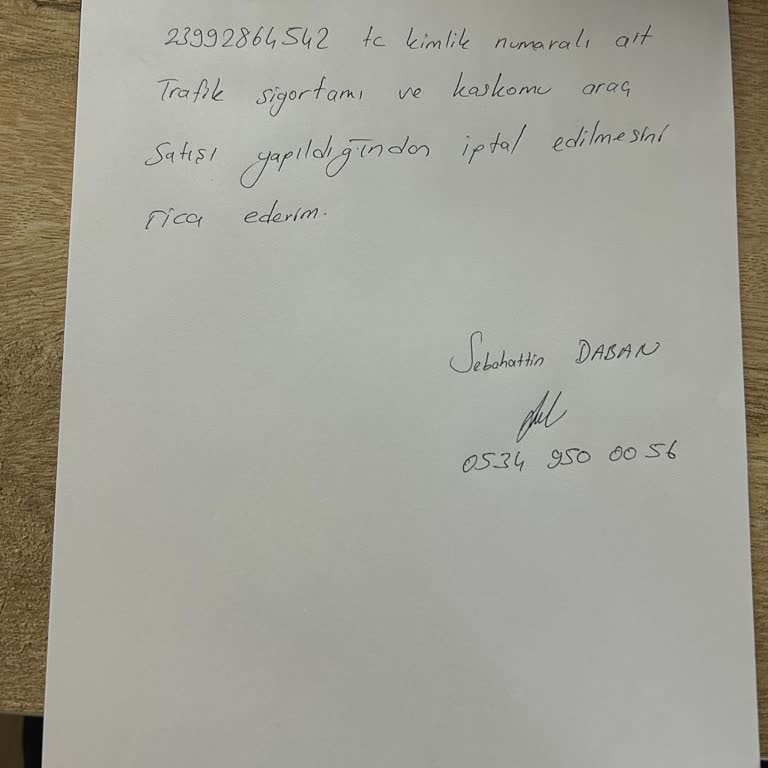 23992864542 tc kimlik numaralı ait
Trafik sigortamı ve kaskomu araç
Satışı yapıldığından iptal edilmesini
rica ederim.
Sebahattin DABAN
0534 950 00 56